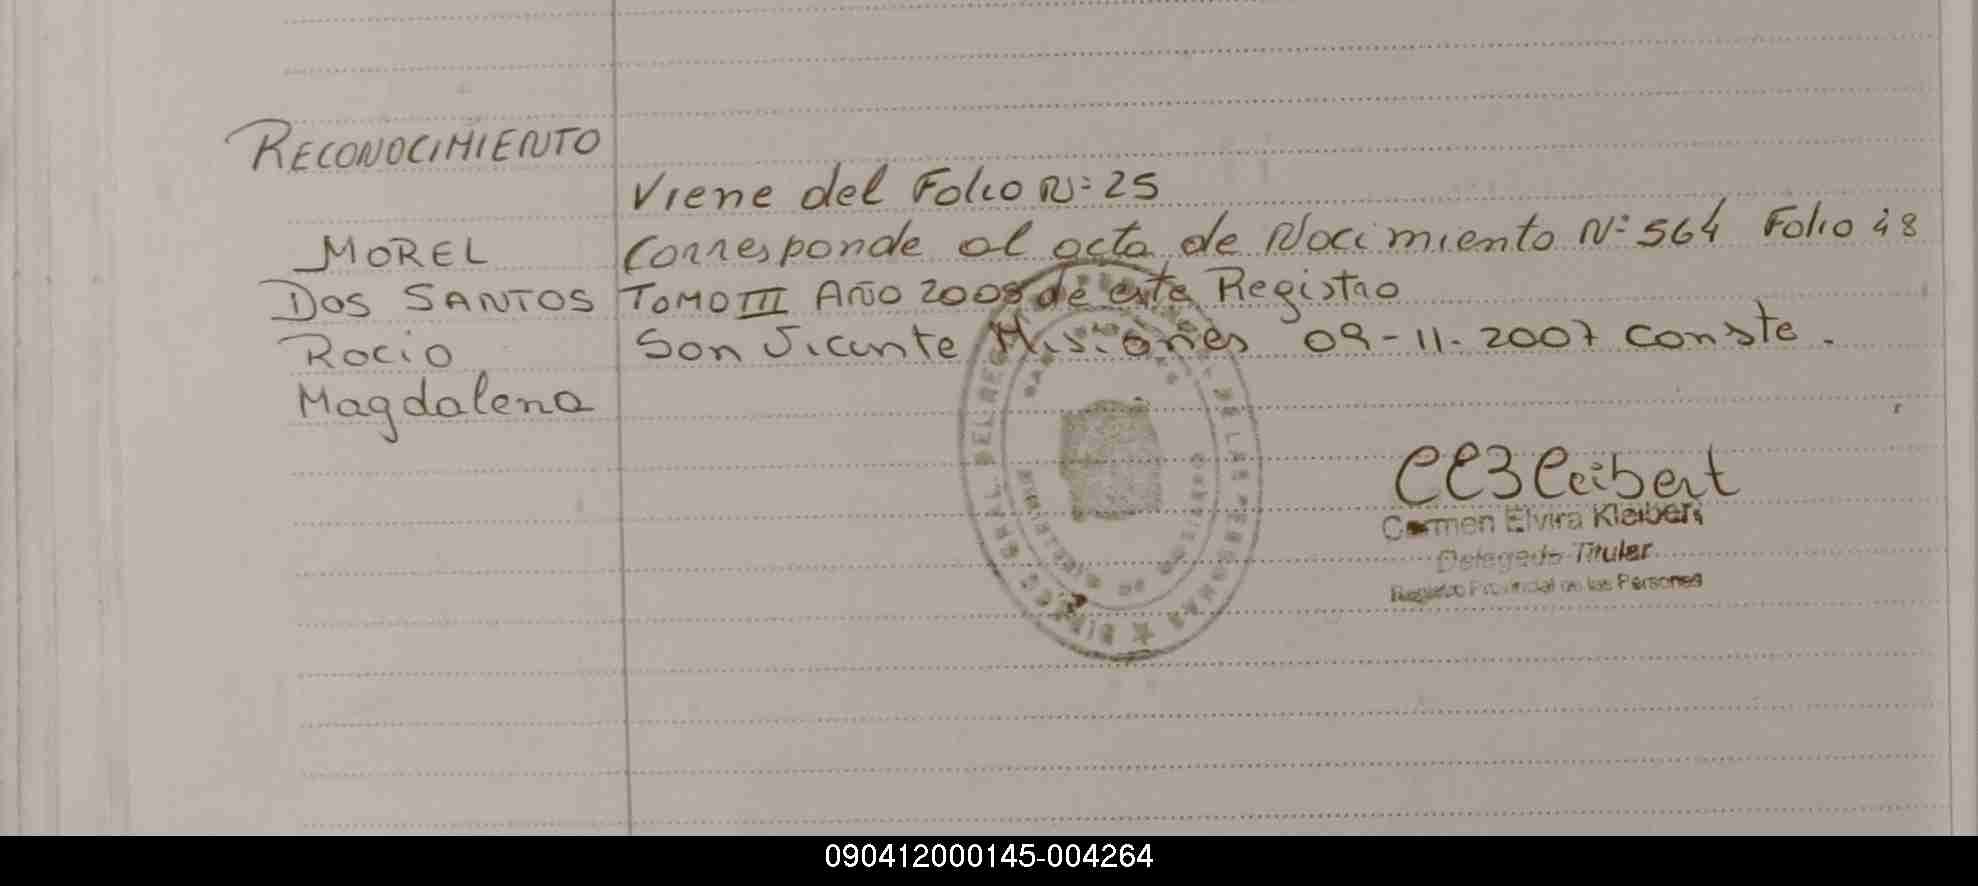 RECONOCIMIENTO
Viene del Folio N: 25
MOREL
DOS SANTOS
ROCIO
Magdalena
Corresponde al acta de Nacimiento N: 564 Folio 48
TOMO III AÑO 2005 de este Registro
San Vicente Misiones 09-11-2007 conste.
CEKleibert
Carmen Elvira Kleibert
Delegado Titular
Registro Provincial de las Personas
DE LAS PERSONAS ★
090412000145-004264